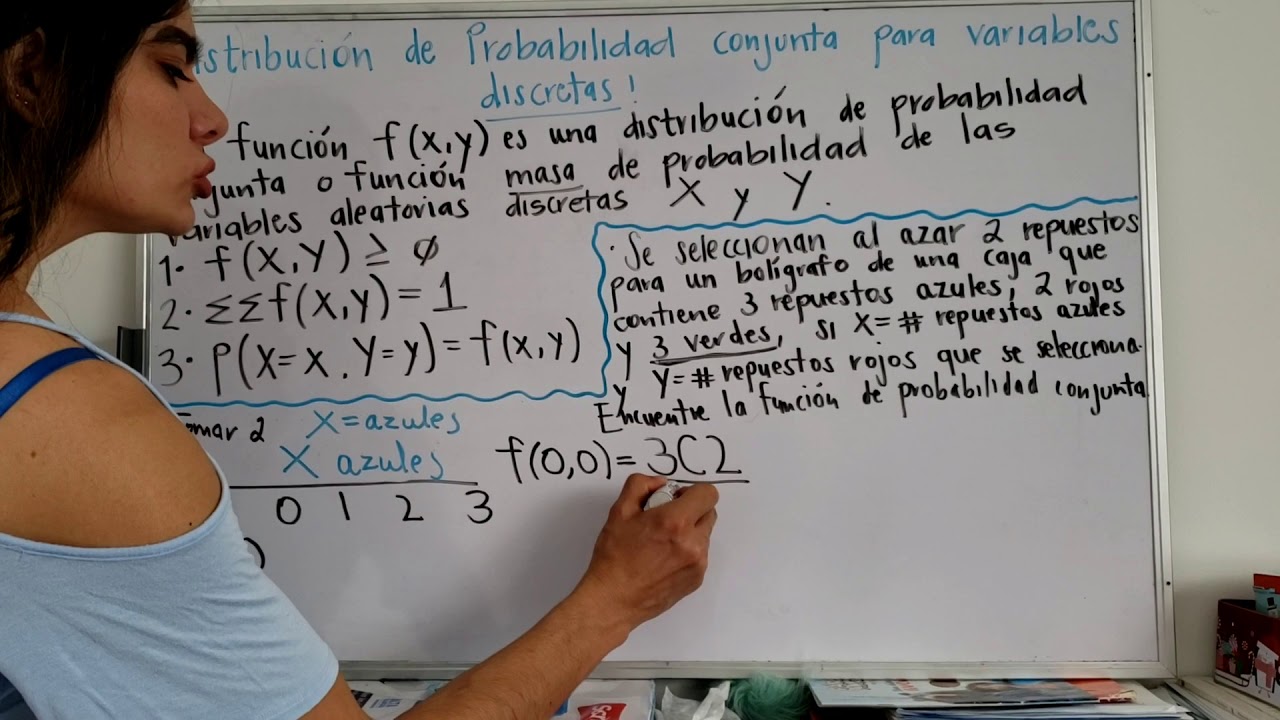 stribución de Probabilidad conjunta para variables
discretas!
función f(x,y) es una distribución de probabilidad
junta o función masa de probabilidad de las
variables aleatorias discretas X y Y.
1. f(X,Y) ≥ ∅
2. ΣΣf(x,y)=1
3. P(X=x, Y=y)=f(x,y)
· Se seleccionan al azar 2 repuestos
para un bolígrafo de una caja que
contiene 3 repuestos azules, 2 rojos
y 3 verdes, si X=# repuestos azules
y Y=# repuestos rojos que se selecciona.
Encuentre la función de probabilidad conjunta
Tomar 2 X=azules
X azules
0 1 2 3
f(0,0)=3C2